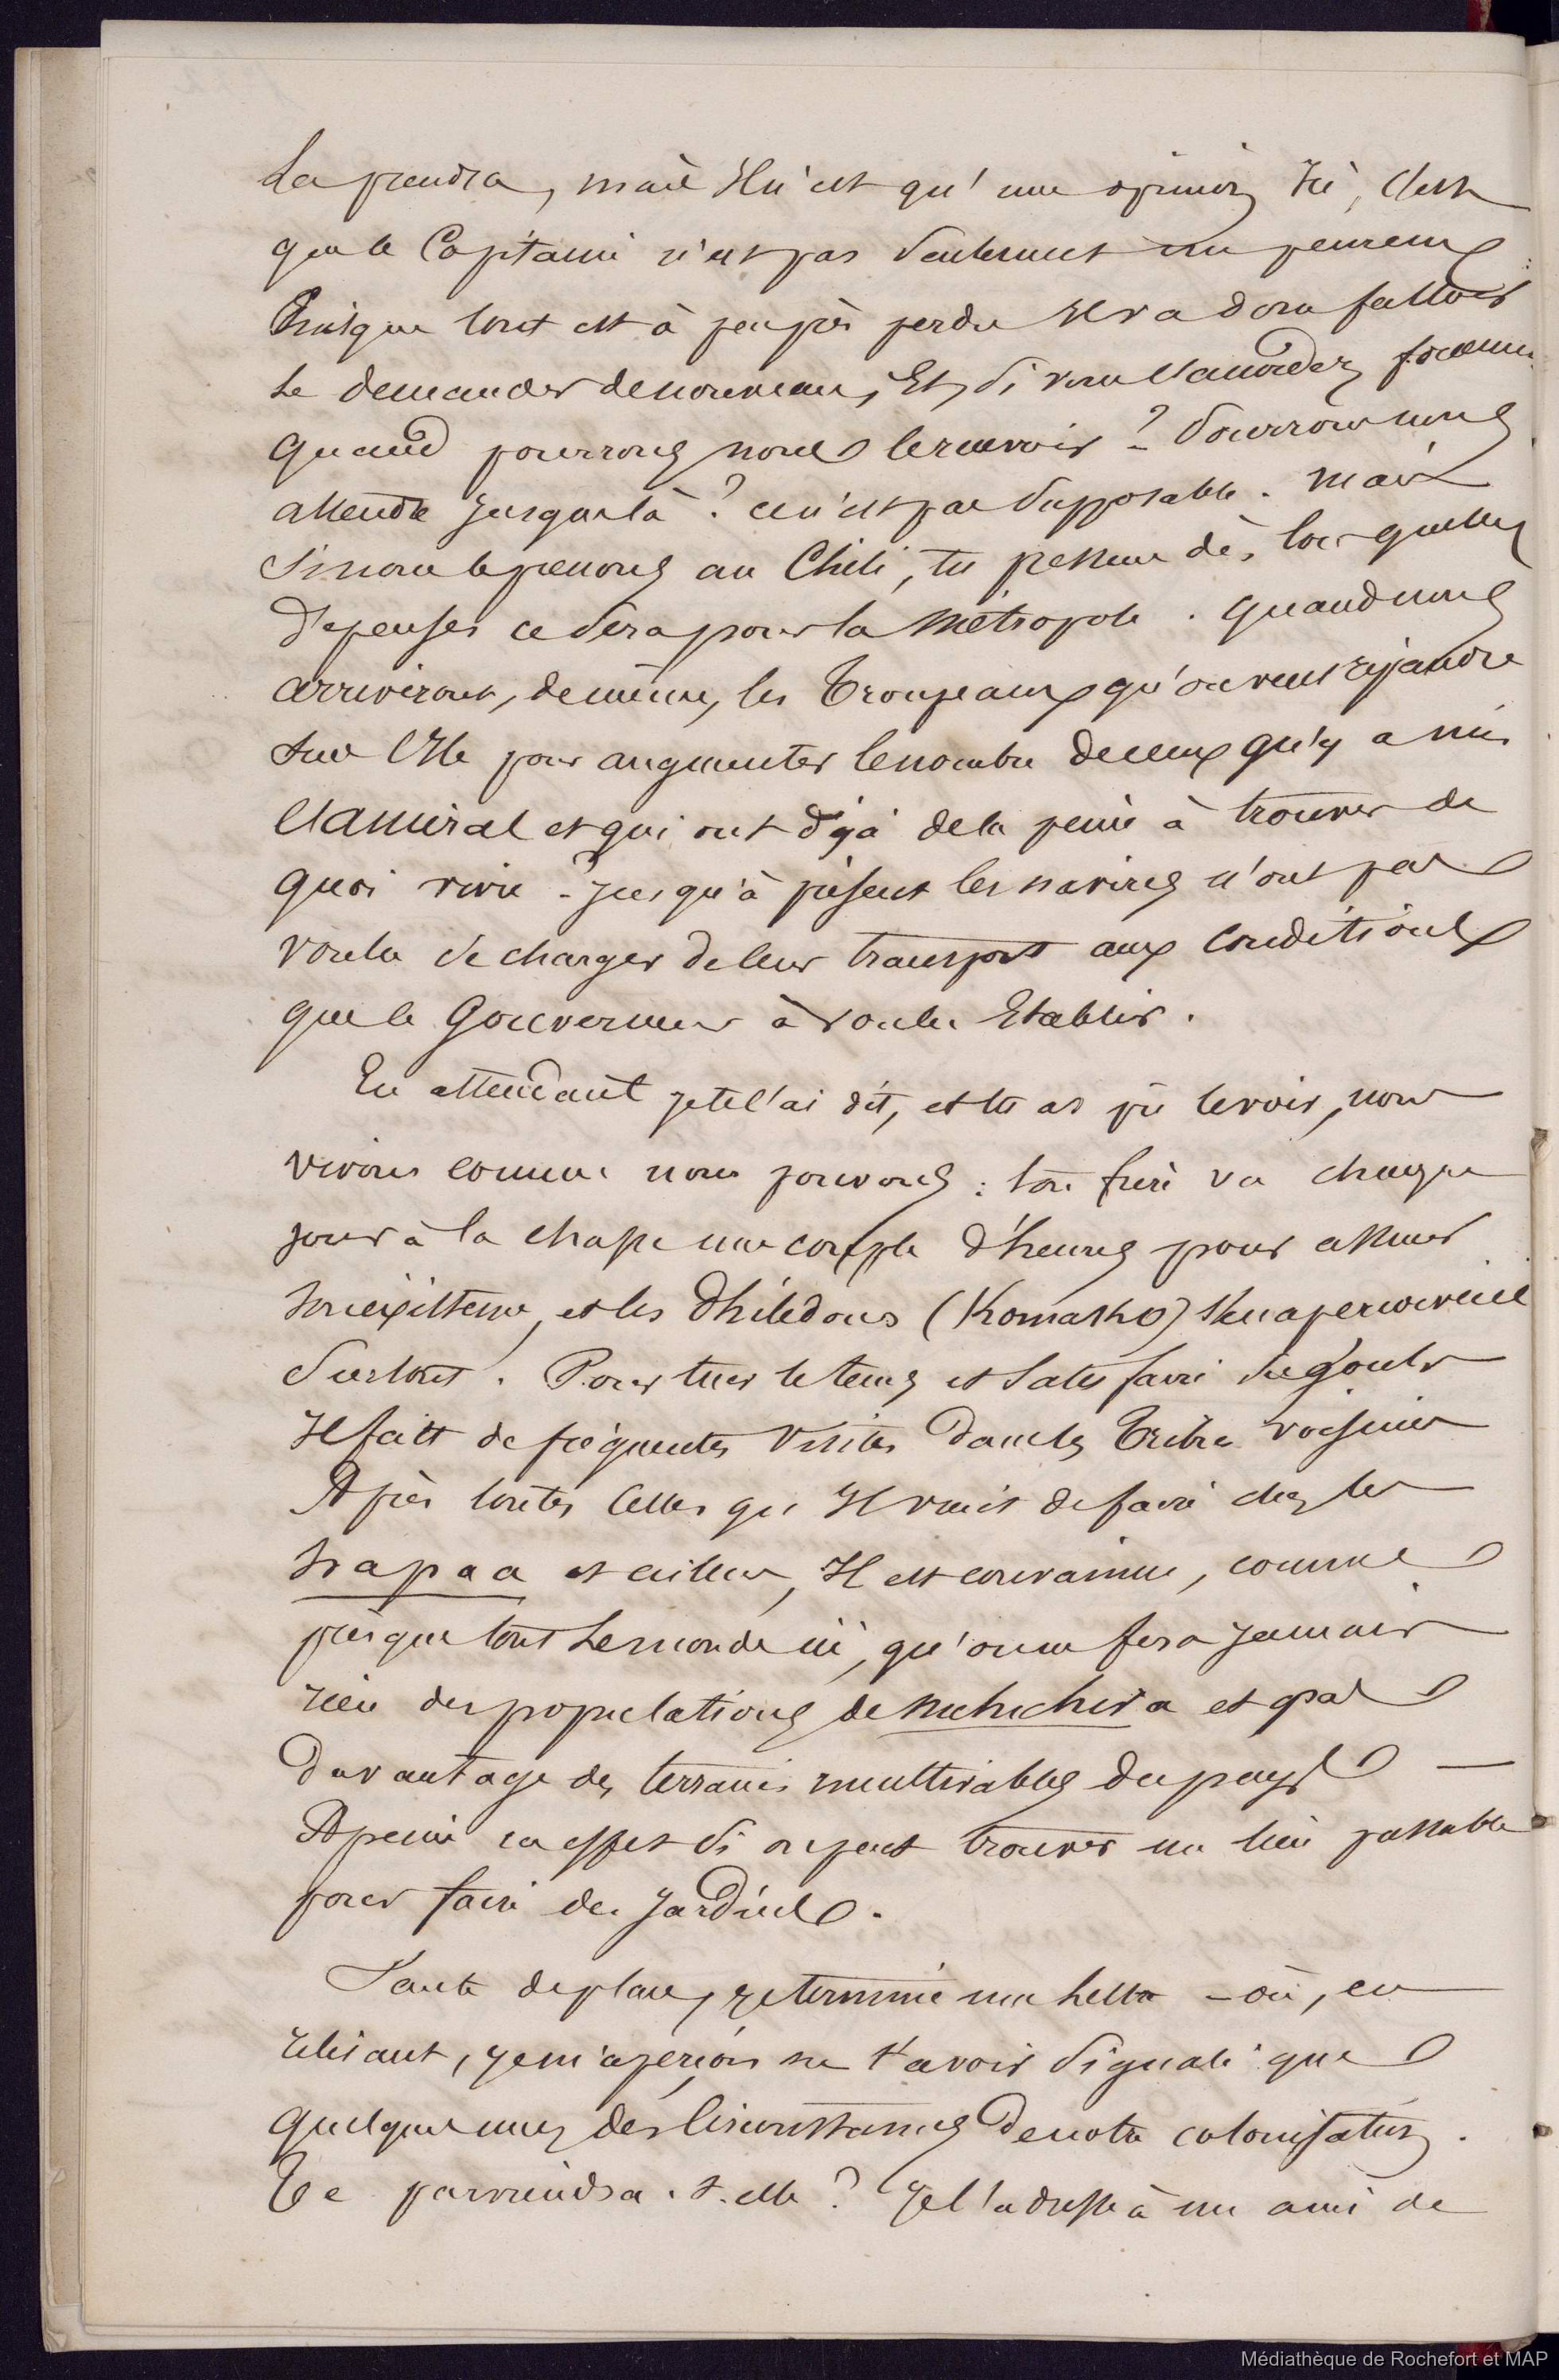 La prendra, mais Il n'est qu'une opinion Ici, c'est
que le Capitaine n'est pas seulement un peureux
Puisque tout est à peu près perdu Il va donc falloir
le demander de nouveau, Et, si vous l'accordez,
quand pourrons nous le recevoir ? Pourrons nous
attendre jusque là ? ce n'est pas supposable. mais
si nous le prenons au Chili, tu présume dès lors quelles
dépenses ce sera pour la Métropole. quand nous
arriveront, de même, les Troupeaux qu'on veut répandre
sur l'Ile pour augmenter le nombre de ceux qu'y a mis
l'amiral et qui ont déjà de la peine à trouver de
quoi vivre ? Jusqu'à présent les navires n'ont pas
voulu se charger de leur transport aux conditions
que le Gouverneur à voulu Etablir.
En attendant je te l'ai dit, et tu as pû le voir, nous
vivons comme nous pouvons : ton frère va chaque
jour à la chasse une couple d'heures pour assurer
son existence, et les Philédons (Komako) s'en aperçoivent
surtout. Pour tuer le temps et satisfaire ses gouts
Il fait de fréquentes visites dans les Tribus voisines
Après toutes celles qu'Il vient de faire chez les
et ailleurs, Il est convaincu, comme
presque tout le monde ici, qu'on ne fera jamais
rien des populations de Nuhuhiva et pas
davantage des terrains incultivables du pays —
A peine en effet si on peut trouver un lieu passable
pour faire des jardins.
Faute de place, je termine ma lettre – où, en
relisant, je m'aperçois ne t'avoir signalé que
quelques unes des circonstances de notre colonisation.
Te parviendra-t-elle ? Je l'adresse à un ami de
Médiathèque de Rochefort et MAP